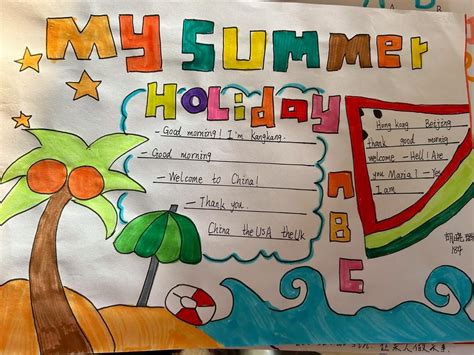 My SUMMER
Holiday
- Good morning! I'm Kangkang.
- Good morning
- Welcome to China!
- Thank you.
China the USA the UK
ABC
Hong kong Beijing
thank good mornig
welcome - Hell! Are
you Maria? - Yes
I am
184